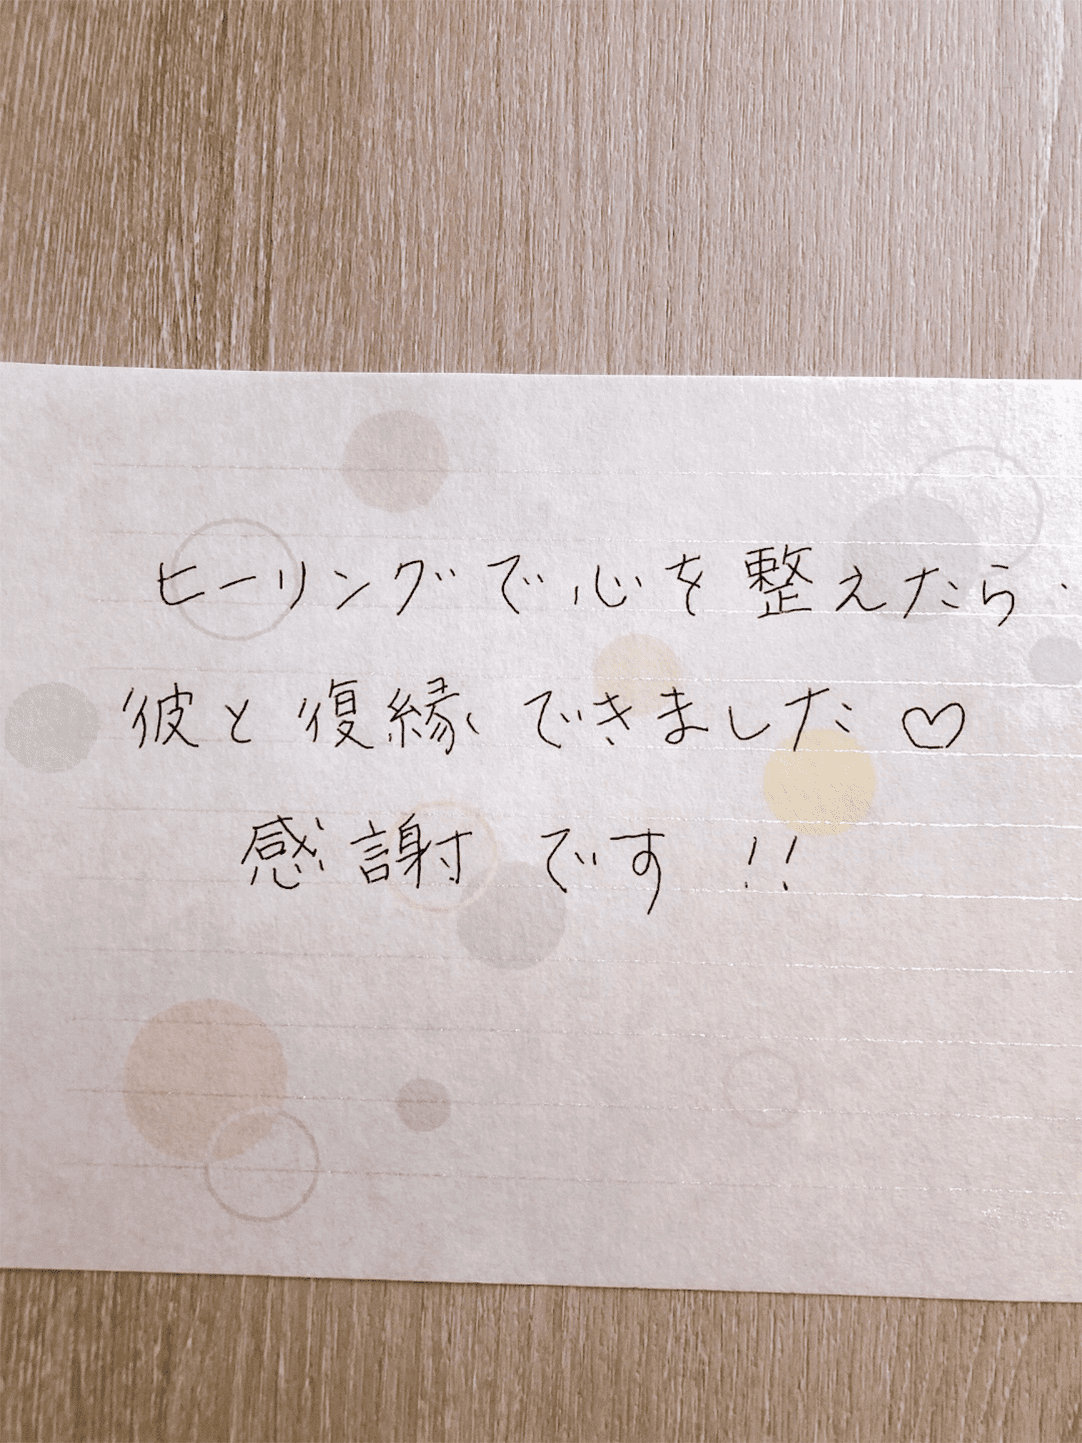 ヒーリングで心を整えたら・
彼と復縁できました♡
感謝です!!